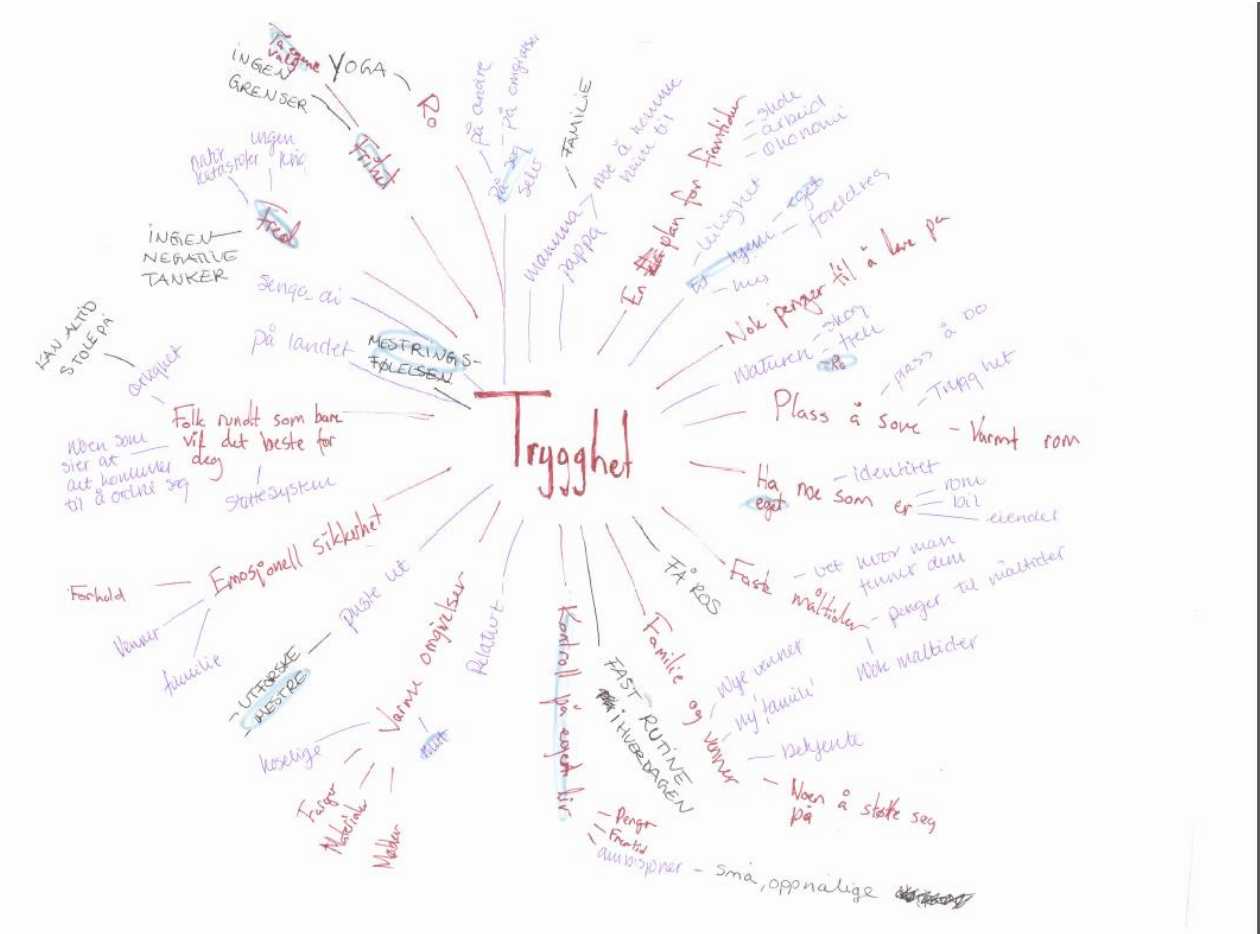 Trygghet
Ta egne
valg
INGEN
GRENSER
Frihet
YOGA
Ro
på andre
- på omgivelser
På seg
selv
FAMILIE
mamma
pappa
noe å komme
hjem til
En plan for fremtiden
- skole
- arbeid
- økonomi
- leilighet
et hjem
- eget
- foreldres
- hus
Nok penger til å leve på
Naturen
- skog
- trær
- Ro
Plass å sove
plass å DO
Trygghet
- Varmt rom
Ha noe som er
eget
- identitet
rom
bil
eiendel
Faste
måltider
- vet hvor man
finner dem
- penger til måltider
Nok måltider
FÅ ROS
Familie og venner
Nye venner
ny familie
- Bekjente
- Noen å støtte seg
på
FAST RUTINE
I HVERDAGEN
Kontroll på eget liv
- Penger
- Fremtid
ambisjoner
- små, oppnålige
Relativt
Varme omgivelser
mitt
koselige
Farger
Materialer
Møbler
puste ut
- UTFORSKE
- MESTRE
Emosjonell sikkerhet
Forhold
Venner
familie
Folk rundt som bare
vil det beste for
deg
ærlighet
KAN ALTID
STOLE PÅ
Noen som
sier at
det kommer
til å ordne seg
støttesystem
MESTRINGS-
FØLELSEN
på landet
senga di
Fred
INGEN
NEGATIVE
TANKER
natur
katastrofer
ingen
krig